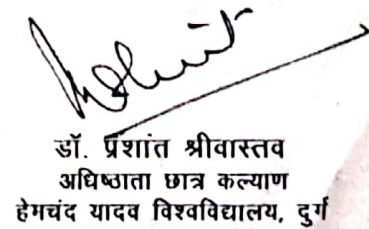 डॉ. प्रशांत श्रीवास्तव
अधिष्ठाता छात्र कल्याण
हेमचंद यादव विश्वविद्यालय, दुर्ग